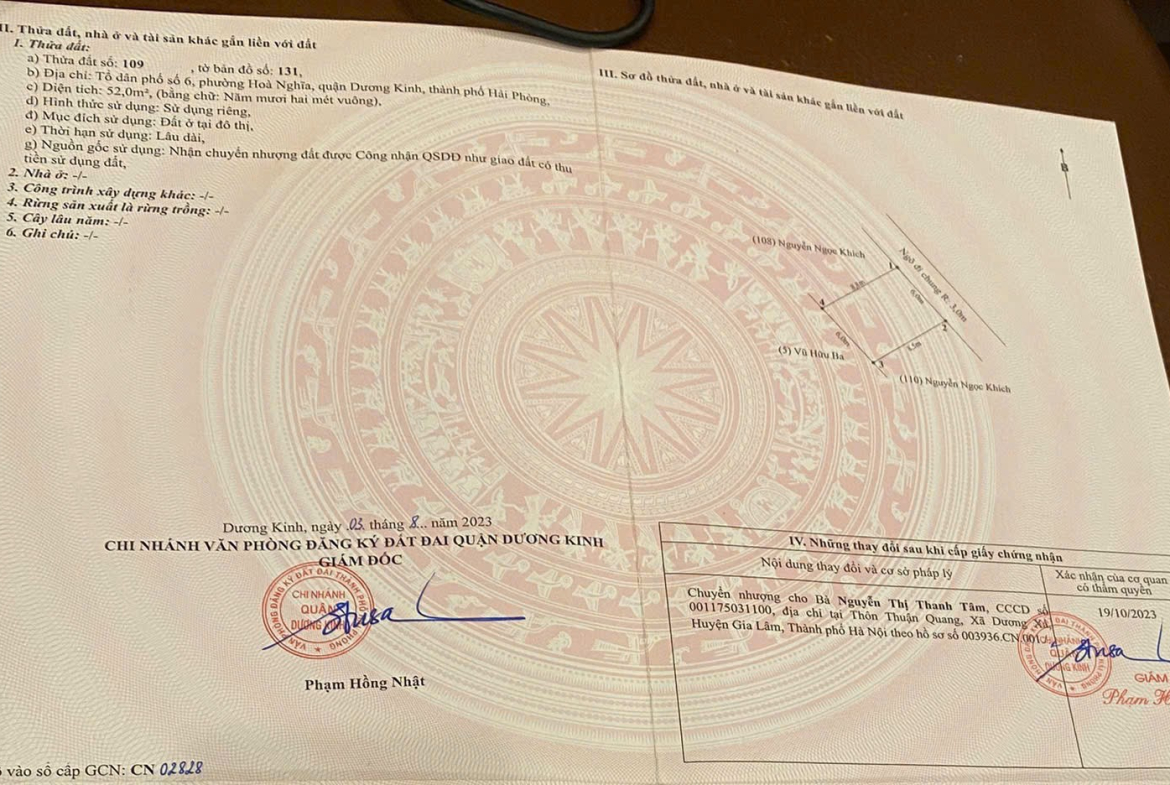 II. Thửa đất, nhà ở và tài sản khác gắn liền với đất
1. Thửa đất:
a) Thửa đất số: 109 , tờ bản đồ số: 131,
b) Địa chỉ: Tổ dân phố số 6, phường Hoà Nghĩa, quận Dương Kinh, thành phố Hải Phòng,
c) Diện tích: 52,0m², (bằng chữ: Năm mươi hai mét vuông),
d) Hình thức sử dụng: Sử dụng riêng,
đ) Mục đích sử dụng: Đất ở tại đô thị,
e) Thời hạn sử dụng: Lâu dài,
g) Nguồn gốc sử dụng: Nhận chuyển nhượng đất được Công nhận QSDĐ như giao đất có thu
tiền sử dụng đất,
2. Nhà ở: -/-
3. Công trình xây dựng khác: -/-
4. Rừng sản xuất là rừng trồng: -/-
5. Cây lâu năm: -/-
6. Ghi chú: -/-
Dương Kinh, ngày 03 tháng 8... năm 2023
CHI NHÁNH VĂN PHÒNG ĐĂNG KÝ ĐẤT ĐAI QUẬN DƯƠNG KINH
GIÁM ĐỐC
VĂN PHÒNG ĐĂNG KÝ ĐẤT ĐAI THÀNH PHỐ HẢI PHÒNG
CHI NHÁNH
QUẬN
DƯƠNG KINH
Phạm Hồng Nhật
vào sổ cấp GCN: CN 02828
III. Sơ đồ thửa đất, nhà ở và tài sản khác gắn liền với đất
B
(108) Nguyễn Ngọc Khích
Ngõ đi chung R: 3,0m
1
6,0m
4
2
6,0m
3
(5) Vũ Hữu Ba
(110) Nguyễn Ngọc Khích
IV. Những thay đổi sau khi cấp giấy chứng nhận
Nội dung thay đổi và cơ sở pháp lý
Xác nhận của cơ quan
có thẩm quyền
Chuyển nhượng cho Bà Nguyễn Thị Thanh Tâm, CCCD số
001175031100, địa chỉ tại Thôn Thuận Quang, Xã Dương Xá,
Huyện Gia Lâm, Thành phố Hà Nội theo hồ sơ số 003936.CN.001
19/10/2023
QUẬN
DƯƠNG KINH
GIÁM
Phạm H